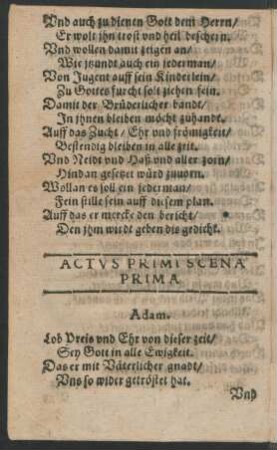 Vnd auch zu dienen Gott dem Herrn/
Er wolt jhn trost vnd heil beschern.
Vnd wollen damit zeigen an/
Wie jtzundt auch ein jederman/
Von Jugent auff sein Kinderlein/
Zu Gottes furcht sol ziehen fein.
Damit der Brüderlicher bandt/
In jhnen bleiben möcht zuhandt.
Auff das Zucht/ Ehr vnd frömigkeit/
Bestendig bleiben in alle zeit.
Vnd Neidt vnd Haß vnd aller zorn/
Hindan gesetzet würd zuuorn.
Wollan es soll ein jederman/
Fein stille sein auff diesem plan.
Auff das er mercke den bericht/
Den jhm wirdt geben die gedicht.
ACTVS PRIMI SCENA
PRIMA
Adam.
Lob Preis vnd Ehr von dieser zeit/
Sey Gott in alle Ewigkeit.
Das er mit Väterlicher gnadt/
Vns so wider getröstet hat.
Vnd